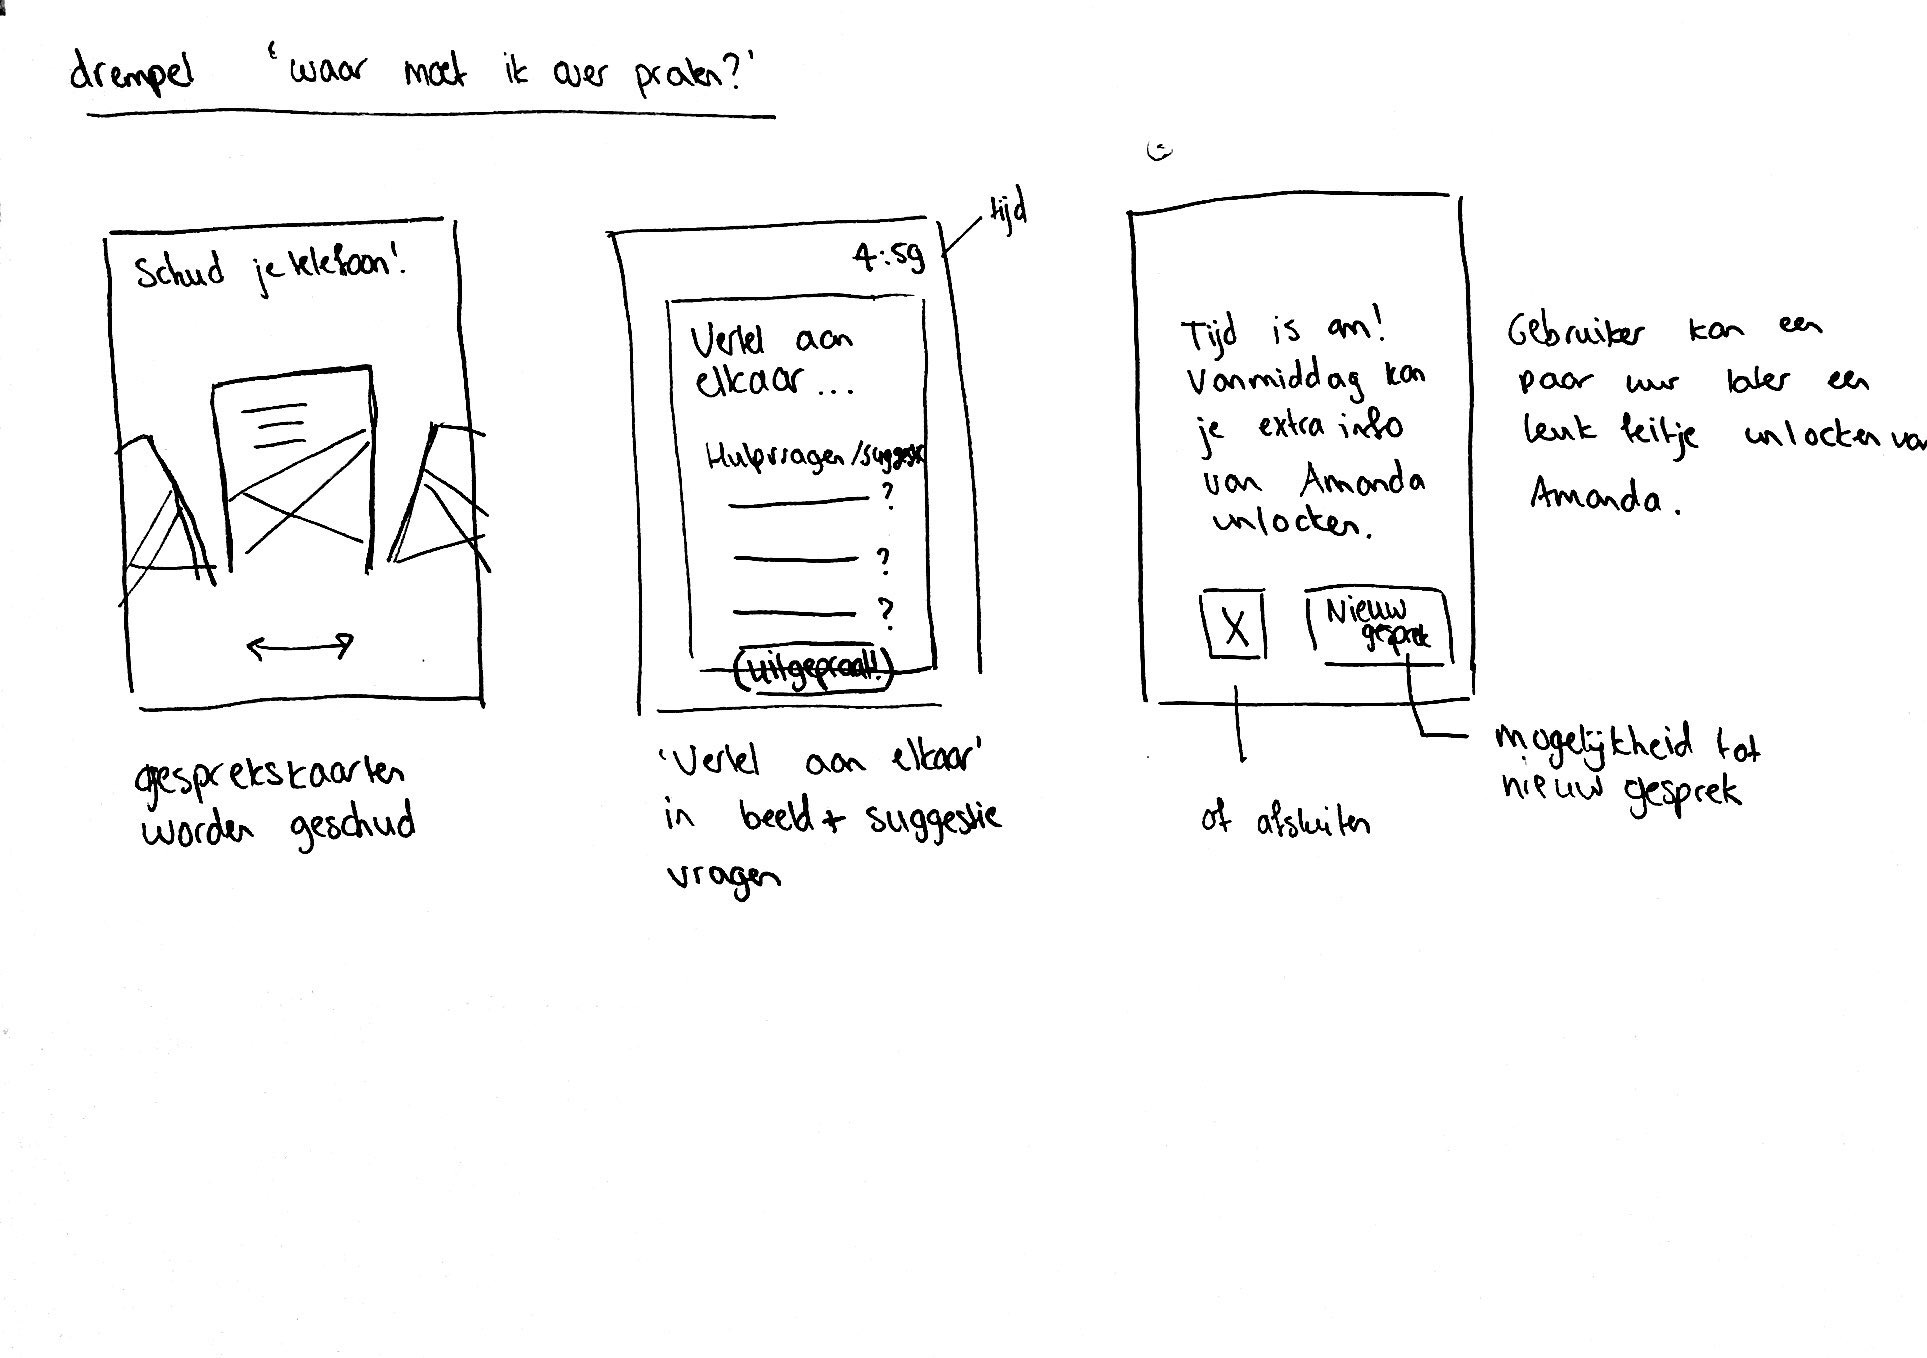 drempel 'waar moet ik over praten?'
Schud je telefoon!
gesprekskaarten
worden geschud
tijd
4:59
Vertel aan
elkaar...
Hulpvragen/suggestie
?
?
?
Uitgepraat!
'Vertel aan elkaar'
in beeld + suggestie
vragen
Tijd is om!
Vanmiddag kan
je extra info
van Amanda
unlocken.
X
Nieuw
gesprek
of afsluiten
mogelijkheid tot
nieuw gesprek
Gebruiker kan een
paar uur later een
leuk feitje unlocken van
Amanda.